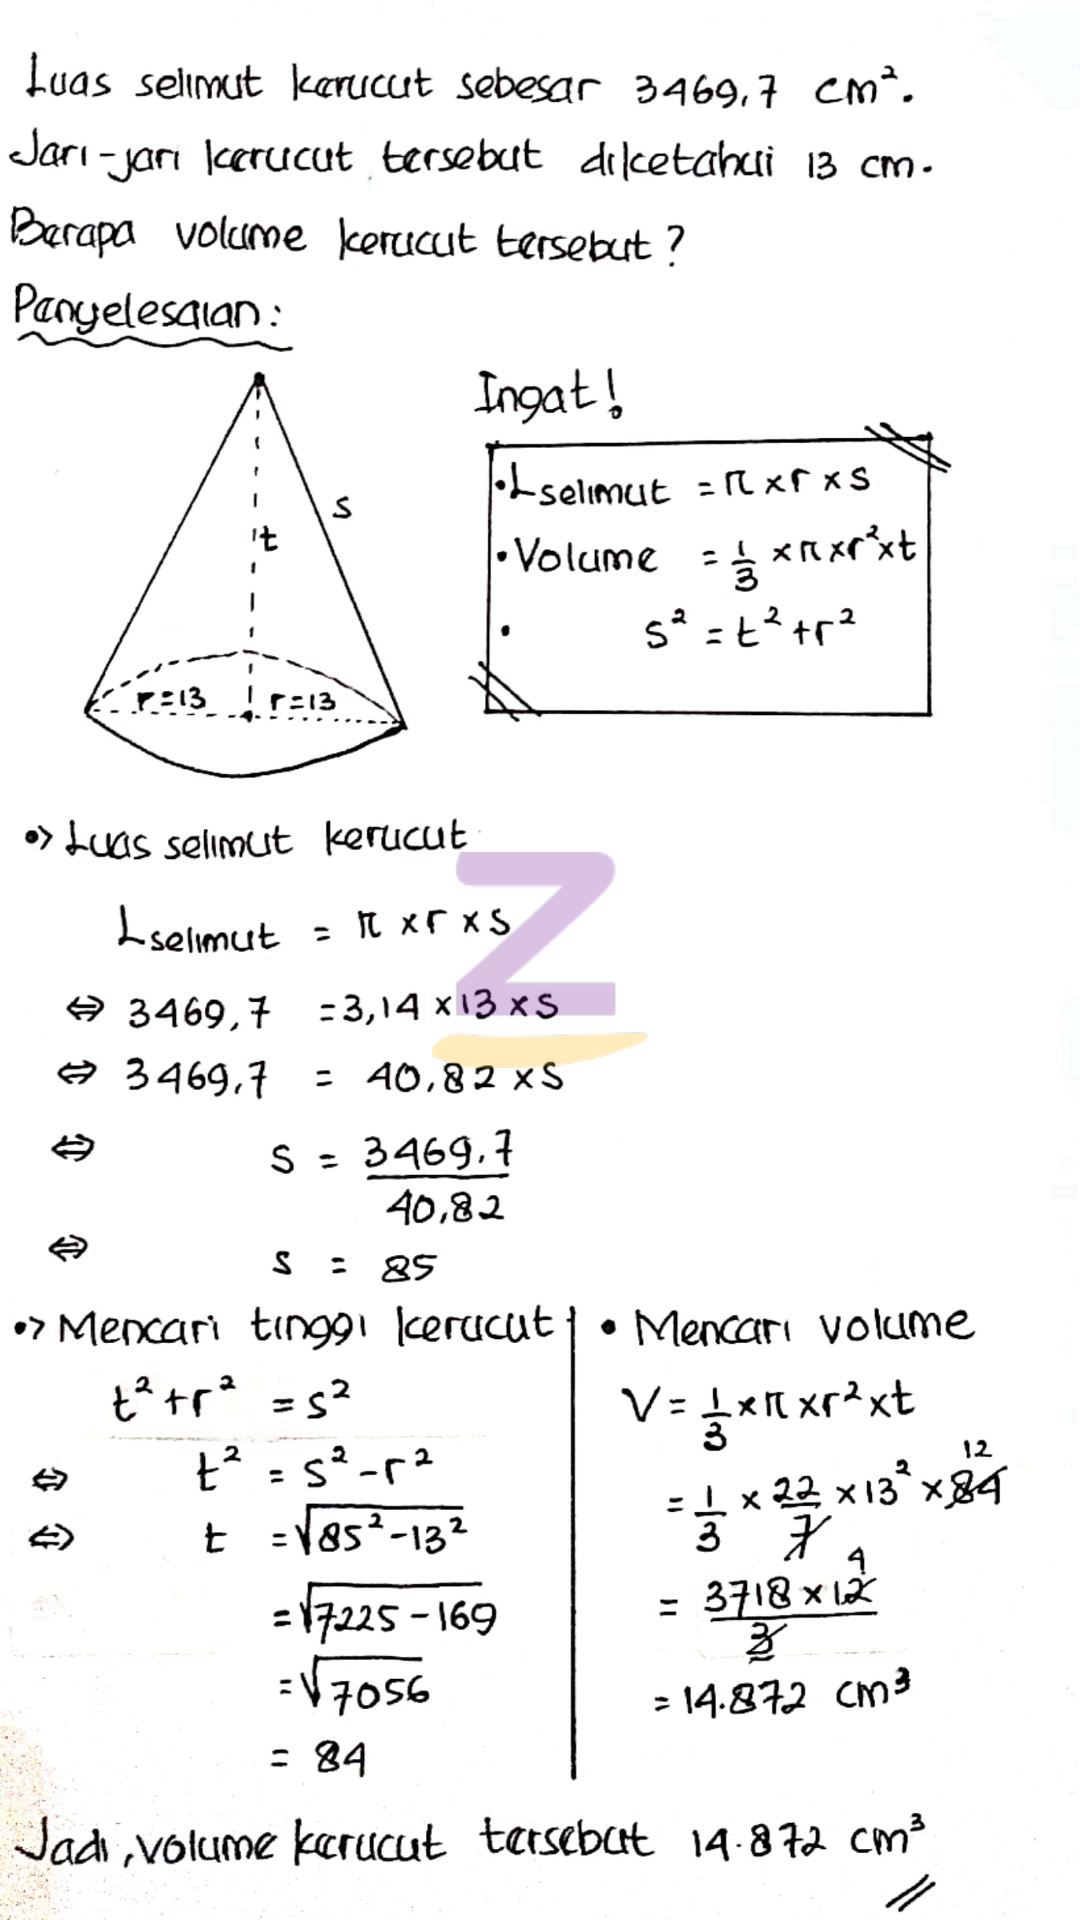 Luas selimut kerucut sebesar 3469,7 cm².
Jari-jari kerucut tersebut diketahui 13 cm.
Berapa volume kerucut tersebut?
Penyelesaian:
Ingat!
• L selimut = π x r x s
• Volume = 1/3 x π x r² x t
• s² = t² + r²
s
t
r=13 r=13
•> Luas selimut kerucut
L selimut = π x r x s
⇔ 3469,7 = 3,14 x 13 x s
⇔ 3469,7 = 40,82 x s
⇔ s = 3469,7 / 40,82
⇔ s = 85
•> Mencari tinggi kerucut
t² + r² = s²
⇔ t² = s² - r²
⇔ t = √85² - 13²
= √7225 - 169
= √7056
= 84
• Mencari volume
V = 1/3 x π x r² x t
= 1/3 x 22/7 x 13² x 84 12
= 3718 x 12 4 / 3
= 14.872 cm³
Jadi, volume kerucut tersebut 14.872 cm³
Z